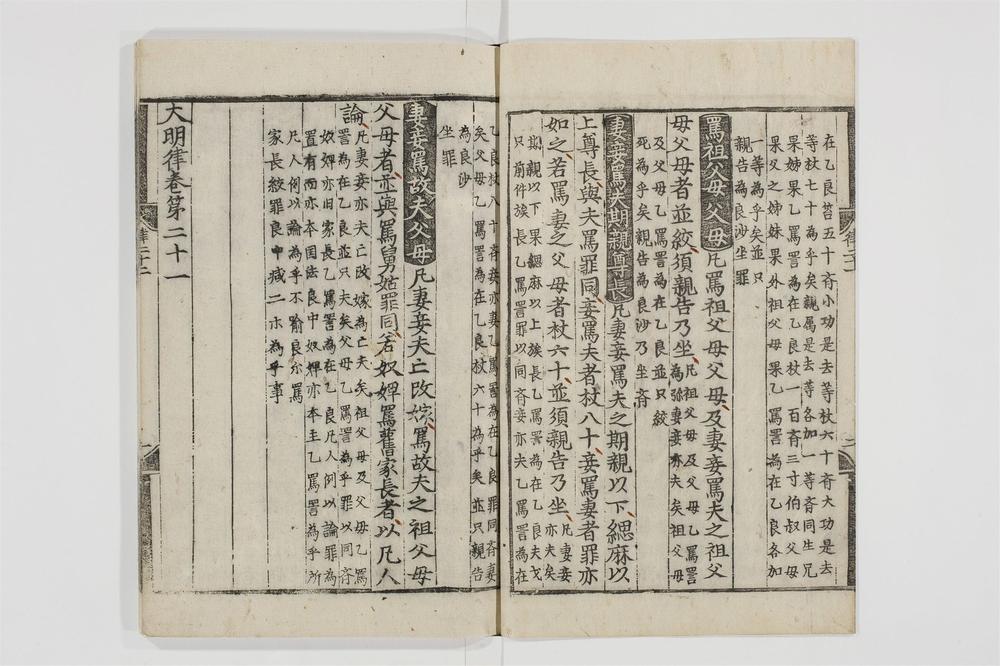 在乙良笞五十斉小功是去等杖六十斉大功是去
等杖七十為乎矣親属是去等各加一等斉同生兄
果姊果乙罵詈為在乙良杖一百斉三寸伯叔父母
果父之姊妹果外祖父母果乙罵詈為在乙良各加
一等為乎矣並只
親告為良沙坐罪
罵祖父母父母凡罵祖父母父母及妻妾罵夫之祖父
母父母者並絞須親告乃坐凡祖父母及父母乙罵詈
為弥妻妾亦夫矣祖父母
及父母乙罵詈為在乙良並只絞
死為乎矣親告為良沙乃坐斉
妻妾罵夫期親尊長凡妻妾罵夫之期親以下緦麻以
上尊長與夫罵罪同妾罵夫者杖八十妾罵妻者罪亦
如之若罵妻之父母者杖六十並須親告乃坐凡妻妾
亦夫矣
期親以下果緦麻以上族長乙罵詈為在乙良夫戈
只前件族長乙罵詈罪以同斉妾亦夫乙罵詈為在
乙良杖八十斉妾亦妻乙罵詈為在乙良罪同斉妻
矣父母乙罵詈為在乙良杖六十為乎矣並只親告
為良沙
坐罪
妻妾罵故夫父母凡妻妾夫亡改嫁罵故夫之祖父母
父母者並與罵舅姑罪同若奴婢罵舊家長者以凡人
論凡妻妾亦夫亡改嫁為亡夫矣祖父母及父母乙罵
詈為在乙良並只夫矣父母乙罵詈為乎罪以同斉
奴婢亦旧家長乙罵詈為在乙良凡人例以論罪為
置有而亦本国法良中奴婢亦本主乙罵詈為乎所
凡人例以論為乎不喻良尔罵
家長絞罪良中减二ホ為乎事
大明律卷第二十一
律二十二